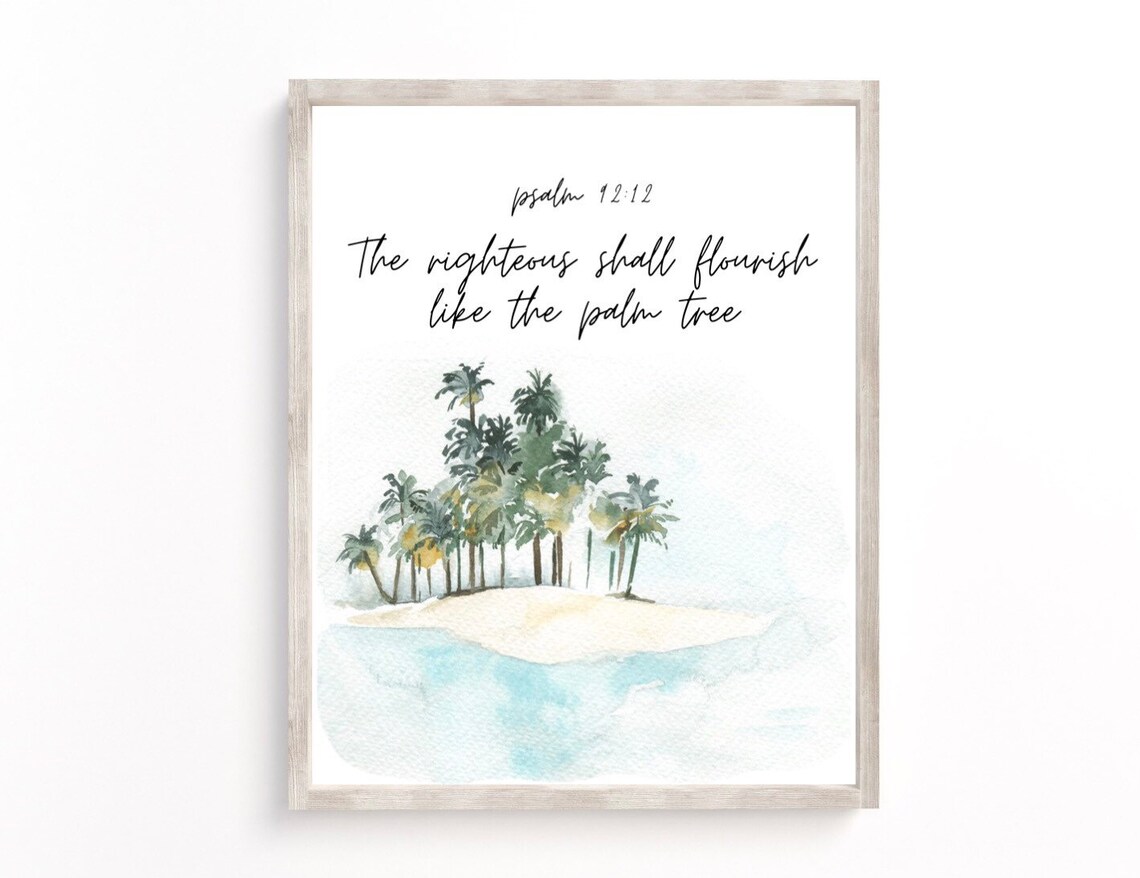 psalm 92:12
The righteous shall flourish
like the palm tree